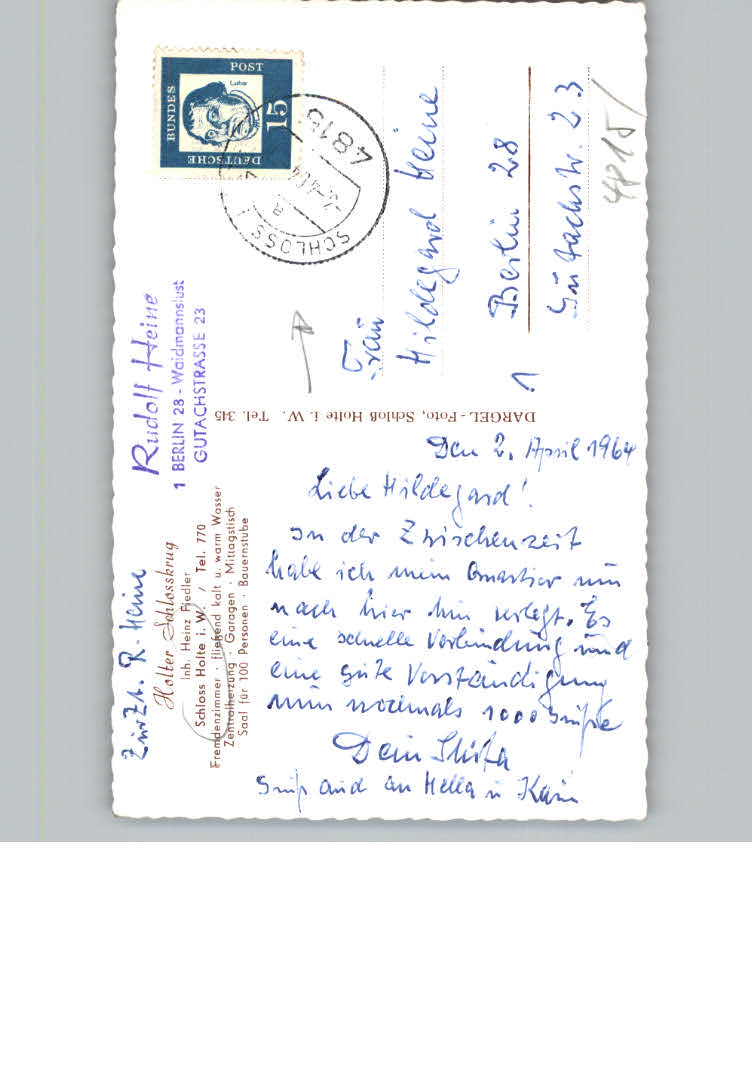 Zur Zt. R. Heine
Holter Schlosskrug
Inh. Heinz Fiedler
Schloss Holte i. W. / Tel. 770
Fremdenzimmer · fließend kalt u. warm Wasser
Zentralheizung · Garagen · Mittagstisch
Saal für 100 Personen · Bauernstube
Rudolf Heine
1 BERLIN 28 - Waidmannslust
GUTACHSTRASSE 23
Den 2. April 1964
Liebe Hildegard!
In der Zwischenzeit
habe ich mein Quartier nun
nach hier hin verlegt. Es
eine schnelle Verbindung und
eine gute Verständigung
nun nochmals 1000 Grüße
Dein
Gruß auch an Hella u Karin
DARGEL-Foto, Schloß Holte i. W. Tel. 345
DEUTSCHE
BUNDES
POST
Luther
15
4815
SCHLOSS
a
Frau
Hildegard Heine
1
Berlin 28
Gutachstr. 23
4815